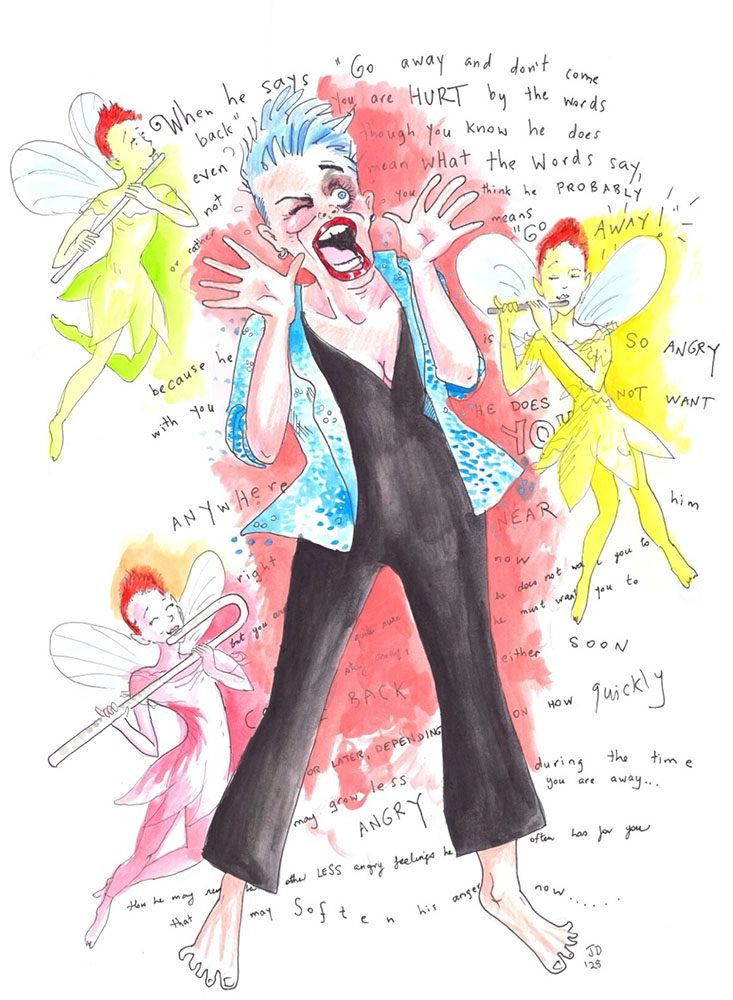 When he says "Go away and don't come
back" you are HURT by the words
even though you know he does
not mean what the words say,
or rather you think he PROBABLY
means "GO AWAY!"
because he is SO ANGRY
with you HE DOES NOT WANT
YOU
ANYWHERE NEAR him
right now
but you are quite sure he does not want you to
stay away, he must want you to
either SOON
COME BACK
OR LATER, DEPENDING ON HOW quickly
may grow less during the time
ANGRY you are away...
How he may other LESS angry feelings he often has for you
that may Soften his anger now......
JD
'25